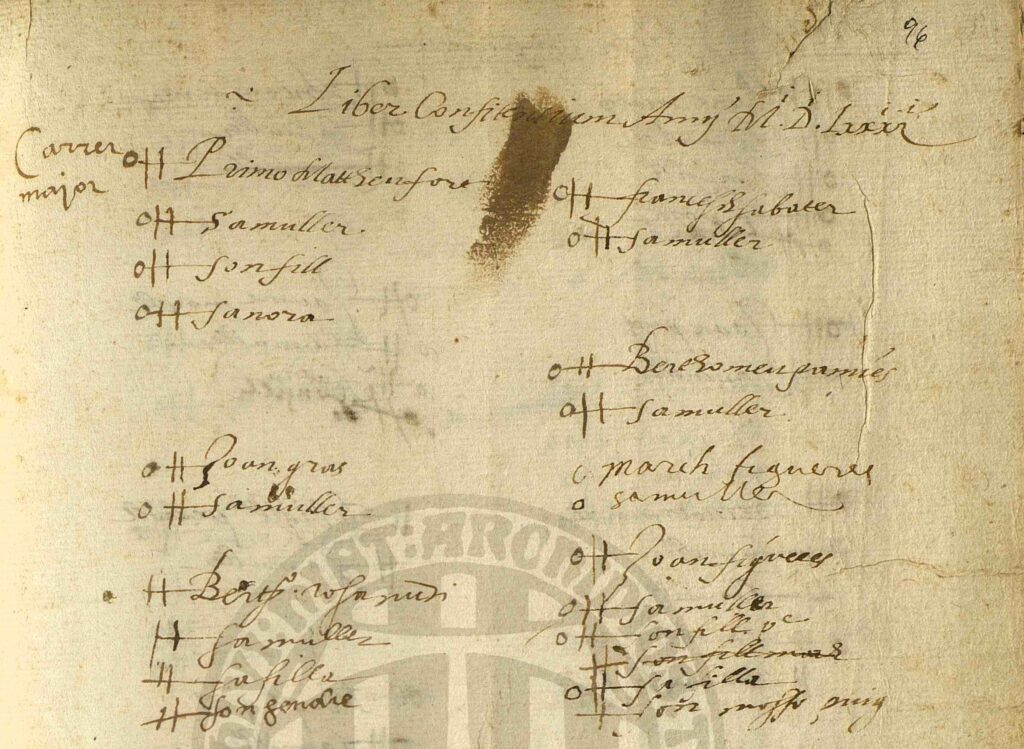 96
Liber Confitentium Anny M.D.Lxxxi
Carrer
major
Primo Mattheu fore
sa muller
son fill
sa nora
Joan gras
sa muller
Berth.
sa muller
sa filla
son gendre
sabater
sa muller
Berthomeu pamies
sa muller
march figueres
sa muller
Joan figueres
sa muller
son fill
son fill
sa filla
son mosso puig